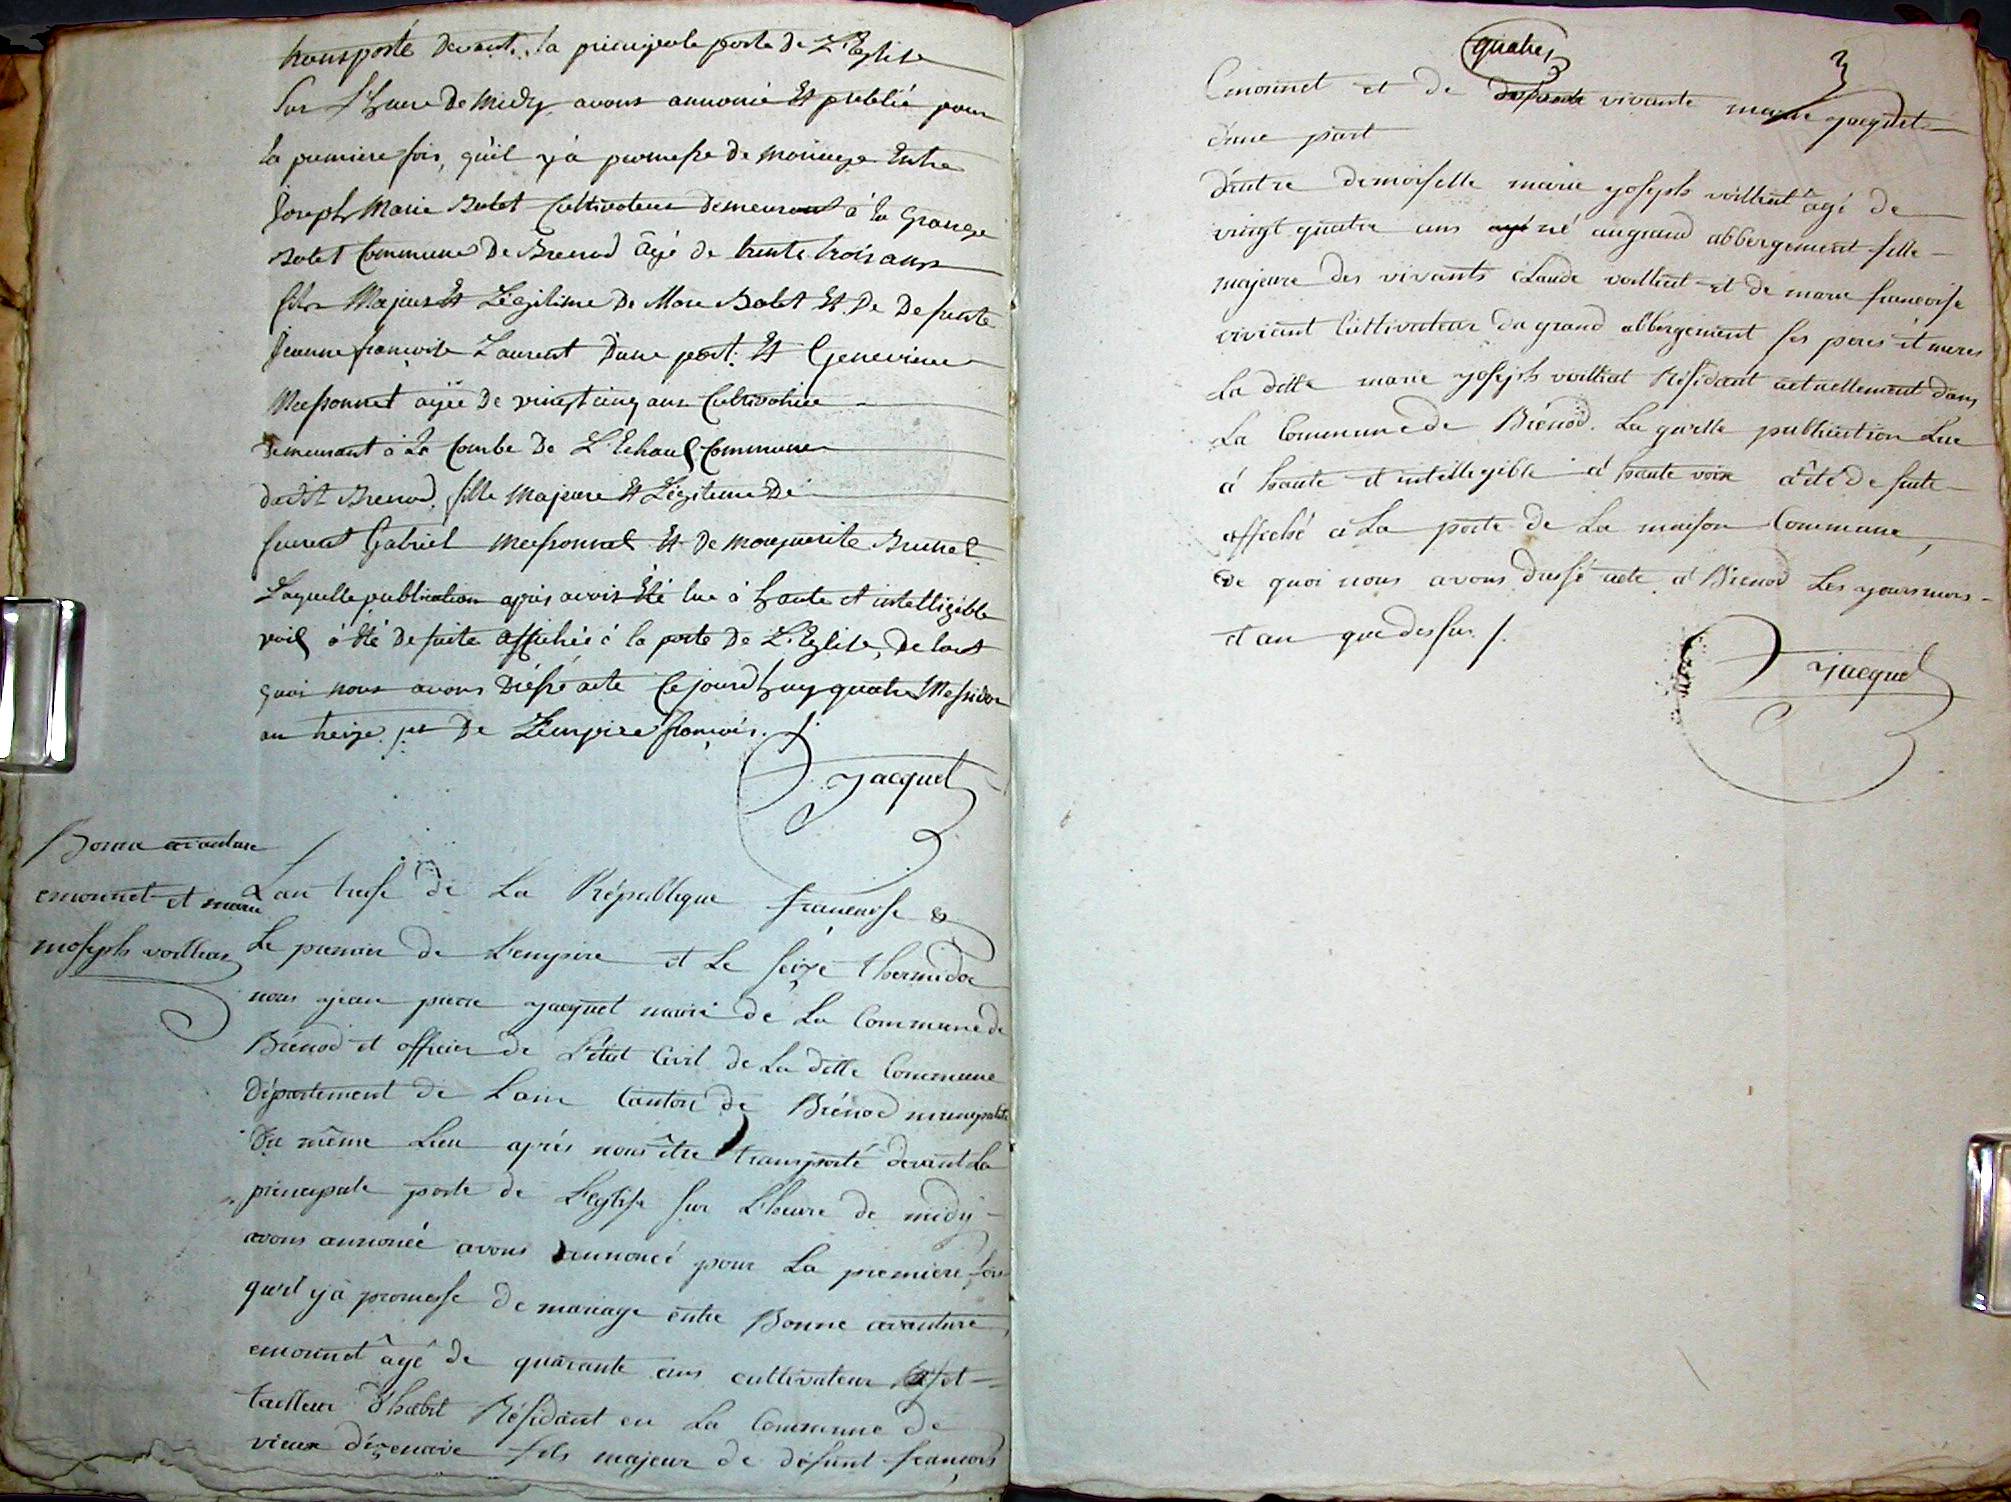 transporté devant la principale porte de L'Eglise
Sur L'heure De midy avons annoncé Et publié pour
la premiere fois, qu'il y à promesse de mariage Entre
Joseph Marie Balet Cultivateur demeurant à la Grange
Balet Commune De Brenod âgé de trente trois ans
fils Majeur Et Légitime De Marc Balet Et De Defunte
Jeanne françoise Laurent Dune part. Et Genevieve
Messonnet agée De vingt cinq ans Cultivatrice
demeurant à la Combe De L'Echaux Commune
dudit Brenod, fille Majeure Et Légitime De
Gabriel Messonnet Et De Marguerite Brunet
Laquelle publication après avoir Été lue à haute et intelligible
voix à Été De suite affichée à la porte De L'Eglise, De tout
quoi nous avons Dressé acte Cejourdhuy quatre Messidor
an treize De L'Empire françois ./.
Jacquet
Bonne avanture
emonnet et marie
yoseph voilliat
Lan treise de La République francaise &
Le premier de Lempire et Le seize thermidor
nous yean pierre yacquet maire de La Commune de
Brénod et officier de L'état Civil de La ditte Commune
Département de Lain Canton de Brénod municipalité
Du même Lieu aprés nous être transporté devant La
principale porte de L'eglise sur L'heure de midy
avons annoncé avons annoncé pour La premiere fois
qu'il y à promesse de mariage entre Bonne avanture
emonnet âgé de quarante ans cultivateur et
tailleur d'habit Résidant en La Commune de
vieux d'izenave fils majeur de défunt francois
quatre
3
Emonnet et de vivante marie yacquet
d'une part
d'autre demoiselle marie yoseph voilliat âgé de
vingt quatre ans agé né au grand abbergement fille
majeure des vivants Claude voilliat et de marie francoise
vivient Cultivateur du grand abbergement ses peres et meres
La ditte marie yoseph voilliat Résidant actuellement dans
La Commune de Brénod. La quelle publication Lue
à haute et intellegible à haute voix a été de suite
affiché a La porte de La maison Commune,
De quoi nous avons dressé acte à Brenod Les yours mois
et an que dessus ./.
yacquet